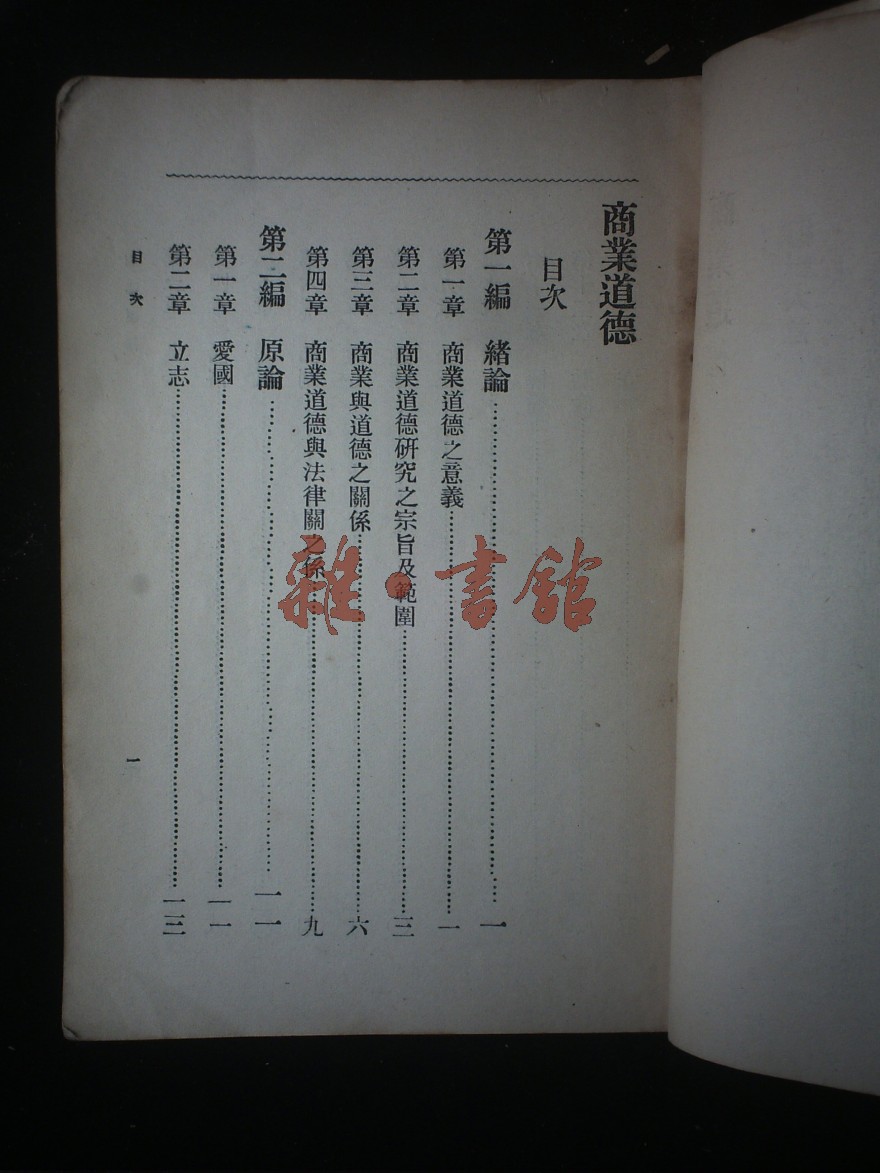 商業道德
目次
第一編 緒論……一
第一章 商業道德之意義……一
第二章 商業道德研究之宗旨及範圍……三
第三章 商業與道德之關係……六
第四章 商業道德與法律關之係……九
第二編 原論……一一
第一章 愛國……一一
第二章 立志……一三
目次
一
雜·書館